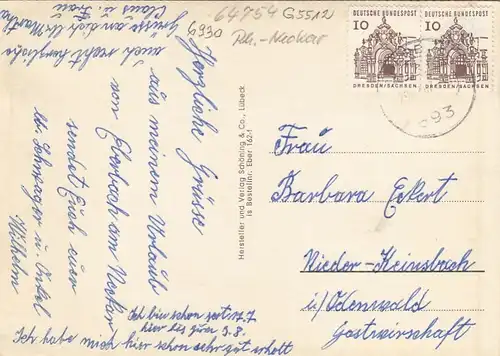 64754 G5512
6930
Rh.-Neckar
Herzliche Grüsse
aus meinem Urlaub
von Eberbach am Neckar,
sendet Euch euer
u. Schwager u. Onkel
Wilhelm
Ich bin schon seit 17.7
hier bis zum 9.8.
Ich habe mich hier schon sehr gut erholt
auch recht herzliche
Grüsse an dich lb. Martha
Claus u. Frau
Hersteller und Verlag Schöning & Co., Lübeck
is Bestellnr. Eber 162-1
DEUTSCHE BUNDESPOST
10
DRESDEN/SACHSEN
DEUTSCHE BUNDESPOST
10
DRESDEN/SACHSEN
693
Frau
Barbara Eckert
Nieder-Keinsbach
i/Odenwald
Gastwirschaft